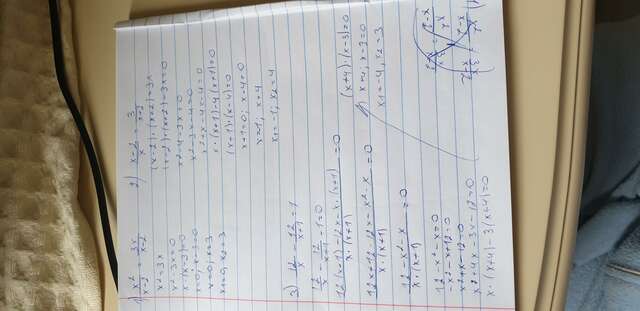 1) x²/x-2 = 3x/x-2
x²=3x
x²-3x=0
x·(x-3)=0
x=0, x-3=0
x=0, x=3
x₁=0, x₂=3
2) x-2/x = 3/x+2
(x-2)·(x+2)=3x
(x-2)·(x+2)-3x=0
x²-4-3x=0
x²-3x-4=0
x²+x-4x-4=0
x·(x+1)-4(x+1)=0
(x+1)·(x-4)=0
x+1=0, x-4=0
x=-1, x=4
x₁=-1, x₂=4
3) 12/x - 12/x+1 = 1
12/x - 12/x+1 - 1 = 0
12(x+1)-12x-x·(x+1)/x·(x+1) = 0
12x+12-12x-x²-x/x·(x+1) = 0
12-x²-x/x·(x+1) = 0
12-x²-x=0
-x²-x+12=0
x²+x-12=0
x²+4x-3x-12=0
x·(x+4)-3(x+4)=0
(x+4)·(x-3)=0
x+4=0, x-3=0
x₁=-4, x₂=3